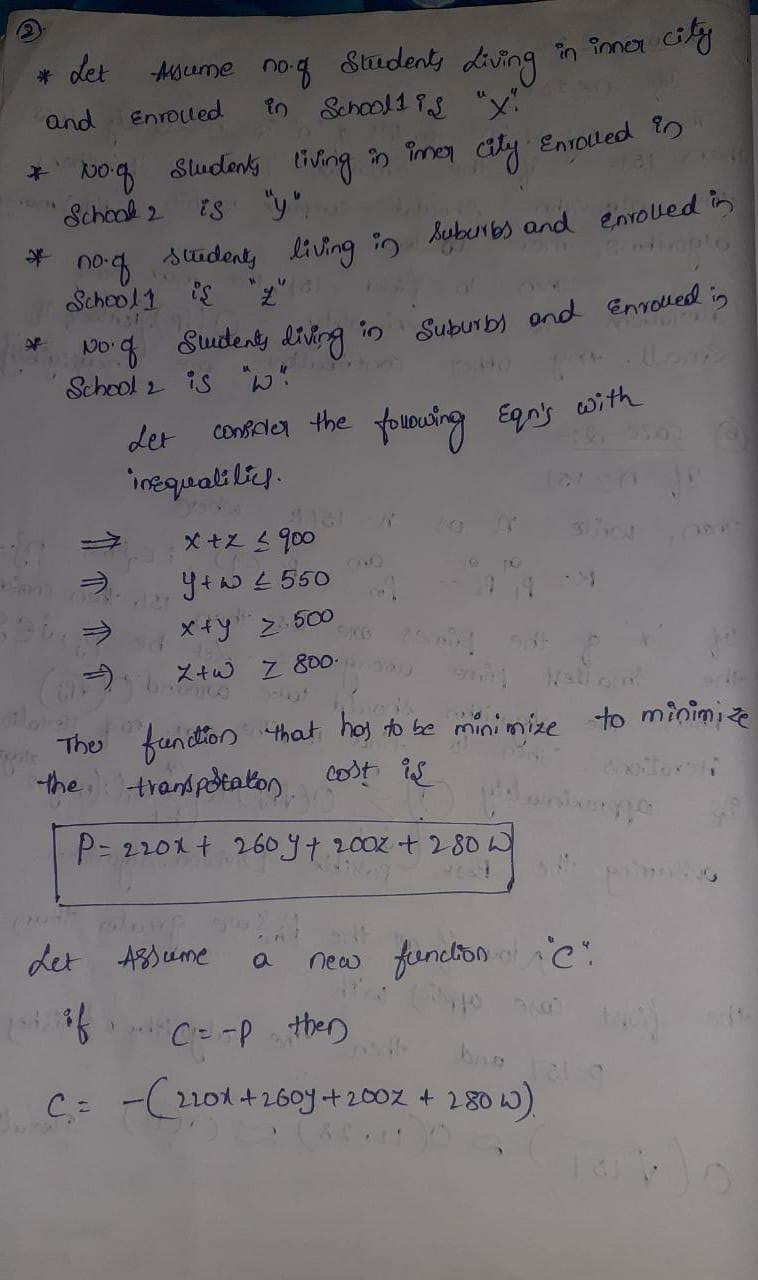 ②
* Let Assume no.of Students Living in inner city
and Enrolled in School1 is "x".
* No.of Students living in inner city Enrolled in
School 2 is "y".
* no.of students living in Suburbs and enrolled in
School1 is "z"
* No.of Students living in Suburbs and Enrolled in
School 2 is "w".
Let consider the following Eqn's with
inequalities.
⇒ x+z ≤ 900
⇒ y+w ≤ 550
⇒ x+y ≥ 500
⇒ z+w ≥ 800.
The function that has to be minimize to minimize
the transpotation cost is
P= 220x + 260y + 200z + 280w
Let Assume a new function "C".
if C = -P then
C = -(220x+260y+200z + 280w)